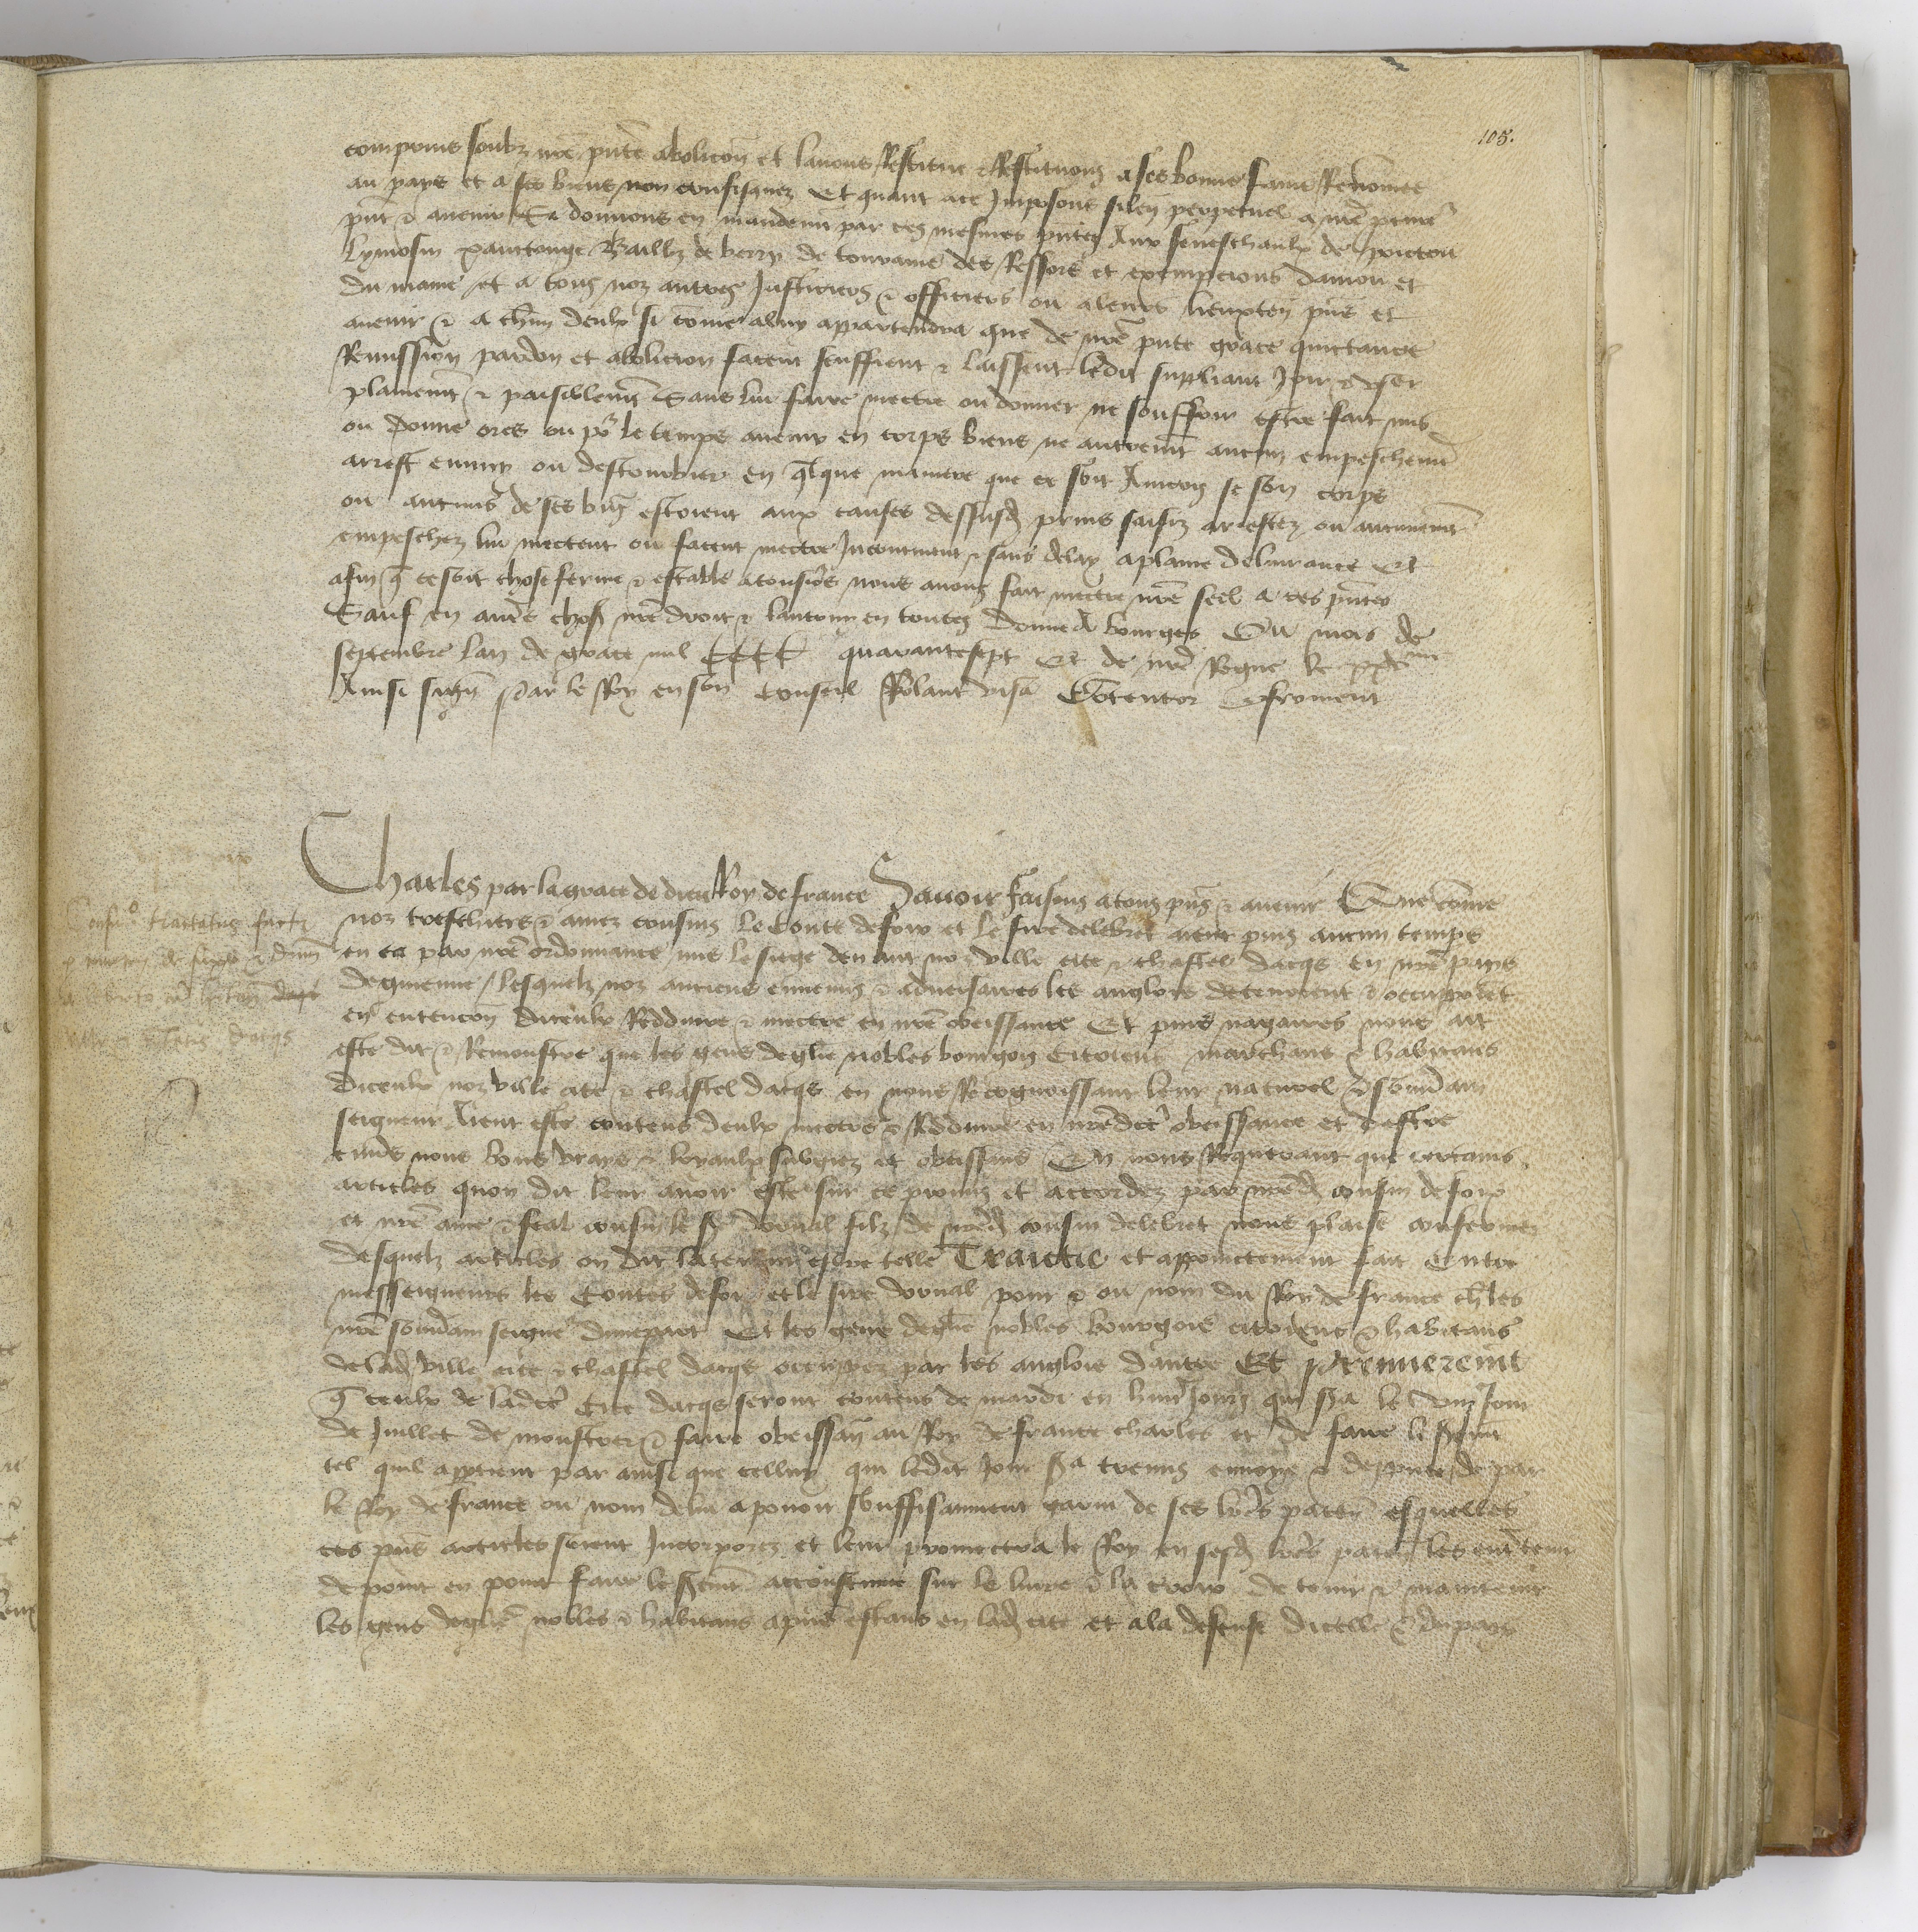 105.
comprins soubz nr̃e pñte abolicõn et lauons Restitue & Restituons a ses bonne fame Renõmee
au pays et a ses biens non confisquez Et quant a ce Imposons silen perpetuel a nr̃e procur̃
pñt & auenir Si donnons en mandem̃t par ces mesmes pñtes Aux seneschaulx de poictou
lymosin xanctonge Bailliz de berry de touraine des Ressors et exempcions daniou et
du maine et a tous noz autres Justiciers & officiers ou a leurs lieuxten̄ pñs et
auenir & a chũn deulx si cõme a luy appartendra que de nr̃e pñte grace quictance
Remission pardon et abolicion facent seuffrent & laissent ledit suppliant Joir & vser
plainem̃t & paisiblem̃t Sans lui faire mectre ou donner ne souffrir estre fait mis
ou donne ores ou po᷑ le temps auenir en corps biens ne autrem̃t aucun empeschem̃t
arrest ennuy ou destourbier en q̃lque maniere que ce soit Aincois se son corps
ou aucuns de ses biẽs estoient aux causes dessusd̃ prins saisiz arrestez ou aucunem̃t
empeschez lui mectent ou facent mectre Incontinent & sans delay a plaine deliurance Et
afin q̃ ce soit chose ferme & estable a tousiõrs nous auons fait mectre nr̃e seel a ces pñtes
Sauf en autr̃s choses nr̃e droit & lautruy en toutes Donne A bourges Ou mois de
septembre lan de grace mil CCCC quarante sept Et de nr̃e Regne le xxv^me
Ainsi sign̄ Par le Roy en son conseil Rolant visa Cõtentor E froment
Charles par la grace de dieu Roy de france Sauoir faisons a tous pñs & auenir Que cõme
noz treschiers & amez cousins le Conte de foix et le sire delebret aient puis aucun temps
en ca par nr̃e ordonnance mis le siege deuant noz ville cite & chastel dacqs en nr̃e pays
de guienne lesquelz noz anciens ennemis & aduersaires les anglois detenoient & occuppoiẽt
en entencõn diceulx Reduire & mectre en nr̃e obeissance Et puis nagaires nous ait
este dit & Remonstre que les gens deglise nobles bourgois Citoiens marchans & habitans
diceulx noz ville cite & chastel dacqs en nous Recognoissant leur naturel & souu̾ain
seigneur aient este contens deulx mectre & Reduire en nr̃edicte obeissance et destre
enuers nous bons vrays & loyaulx subgiez et obeissans En nous Requerant que certains
articles quon dit leur auoir este sur ce promis et accordez par nr̃ed̃ cousin de foix
et nr̃e ame & feal cousin le sr̃ dorual filz de nr̃ed̃ cousin delebret nous plaise confermer
desquelz articles on dit la teneur estre telle Traictie et appoinctement fait Entre
messeigneurs les Contes de foix et le sire dorual pour & ou nom du Roy de france ch̃les
nr̃e souu̾ain seignẽ dune part Et les gens deglise nobles bourgois citoiens & habitans
de lad̃ ville cite & chastel dacqs occuppez par les anglois dautre Et premierem̃t
q̃ ceulx de ladicte Cite dacqs seront contens de mardi en huit Jours qui s̃a le viij^e Jour
de Juillet de monstrer & faire obeissan̄ au Roy de france charles et de faire le serem̃t
tel quil appartient par ainsi que celluy qui ledit Jour s̃a trãmis enuoye & deppute de par
le Roy de france ou nom de lui a pouoir souffisamment garni de ses lr̃es paten̄ esquelles
ces pñs articles seront Incorporez et leur promectra le Roy en sesd̃ lr̃es paten̄ les entretenir
de point en point faire le serem̃t acoustume sur le liure & la croix de tenir & maintenir
les gens deglise nobles & habitans a pñt estans en lad̃ cite et a la defense dicelle & du pays
Confir^o tractatus facti